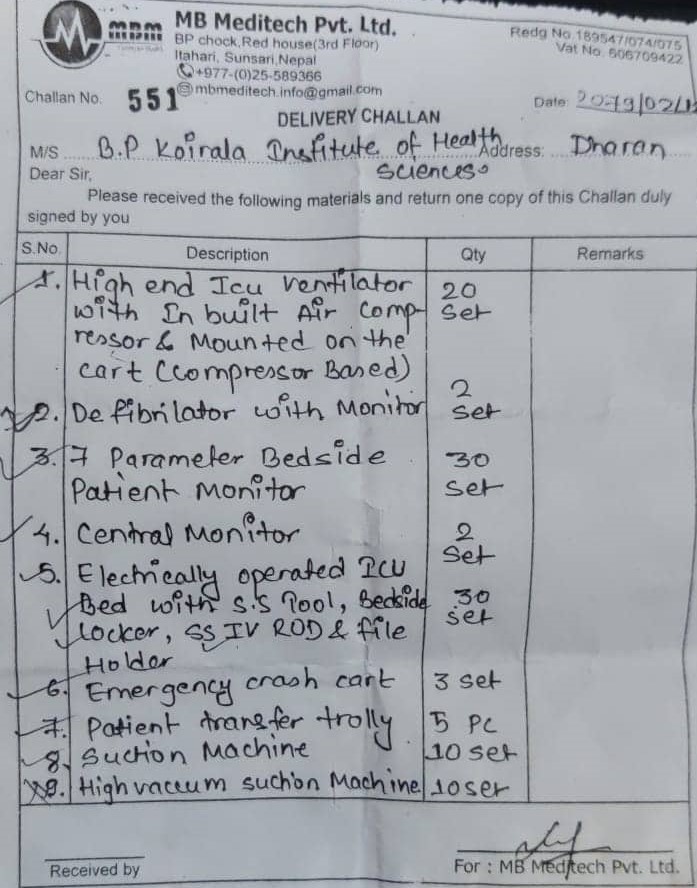 mbm MB Meditech Pvt. Ltd.
Redg No. 189547/074/075
BP chock,Red house(3rd Floor)
Vat No. 606709422
Itahari, Sunsari,Nepal
+977-(0)25-589366
mbmeditech.info@gmail.com
Challan No. 551
Date: 2079/02/
DELIVERY CHALLAN
M/S B.P Koirala Institute of Health Sciences Address: Dharan
Dear Sir,
Please received the following materials and return one copy of this Challan duly
signed by you
S.No. Description Qty Remarks
1. High end Icu ventilator 20
with In built Air Comp- Set
ressor & Mounted on the
cart (compressor Based)
2. Defibrilator with Monitor 2 Set
3. 7 Parameter Bedside 30
Patient Monitor Set
4. Central Monitor 2 Set
5. Electrically operated ICU
Bed with S.S Tool, Bedside 30
Locker, SS IV ROD & file set
Holder
6. Emergency crash cart 3 set
7. Patient transfer trolly 5 PC
8. Suction Machine 10 set
9. High vaccum suction Machine 10 set
Received by
For : MB Meditech Pvt. Ltd.